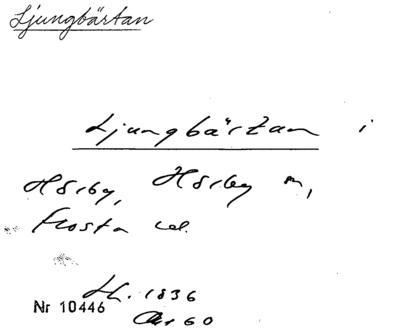 Ljungbärtan
Ljungbärtan i
Hörby, Hörby m,
Frosta
H. 1836
Nr 10446
60